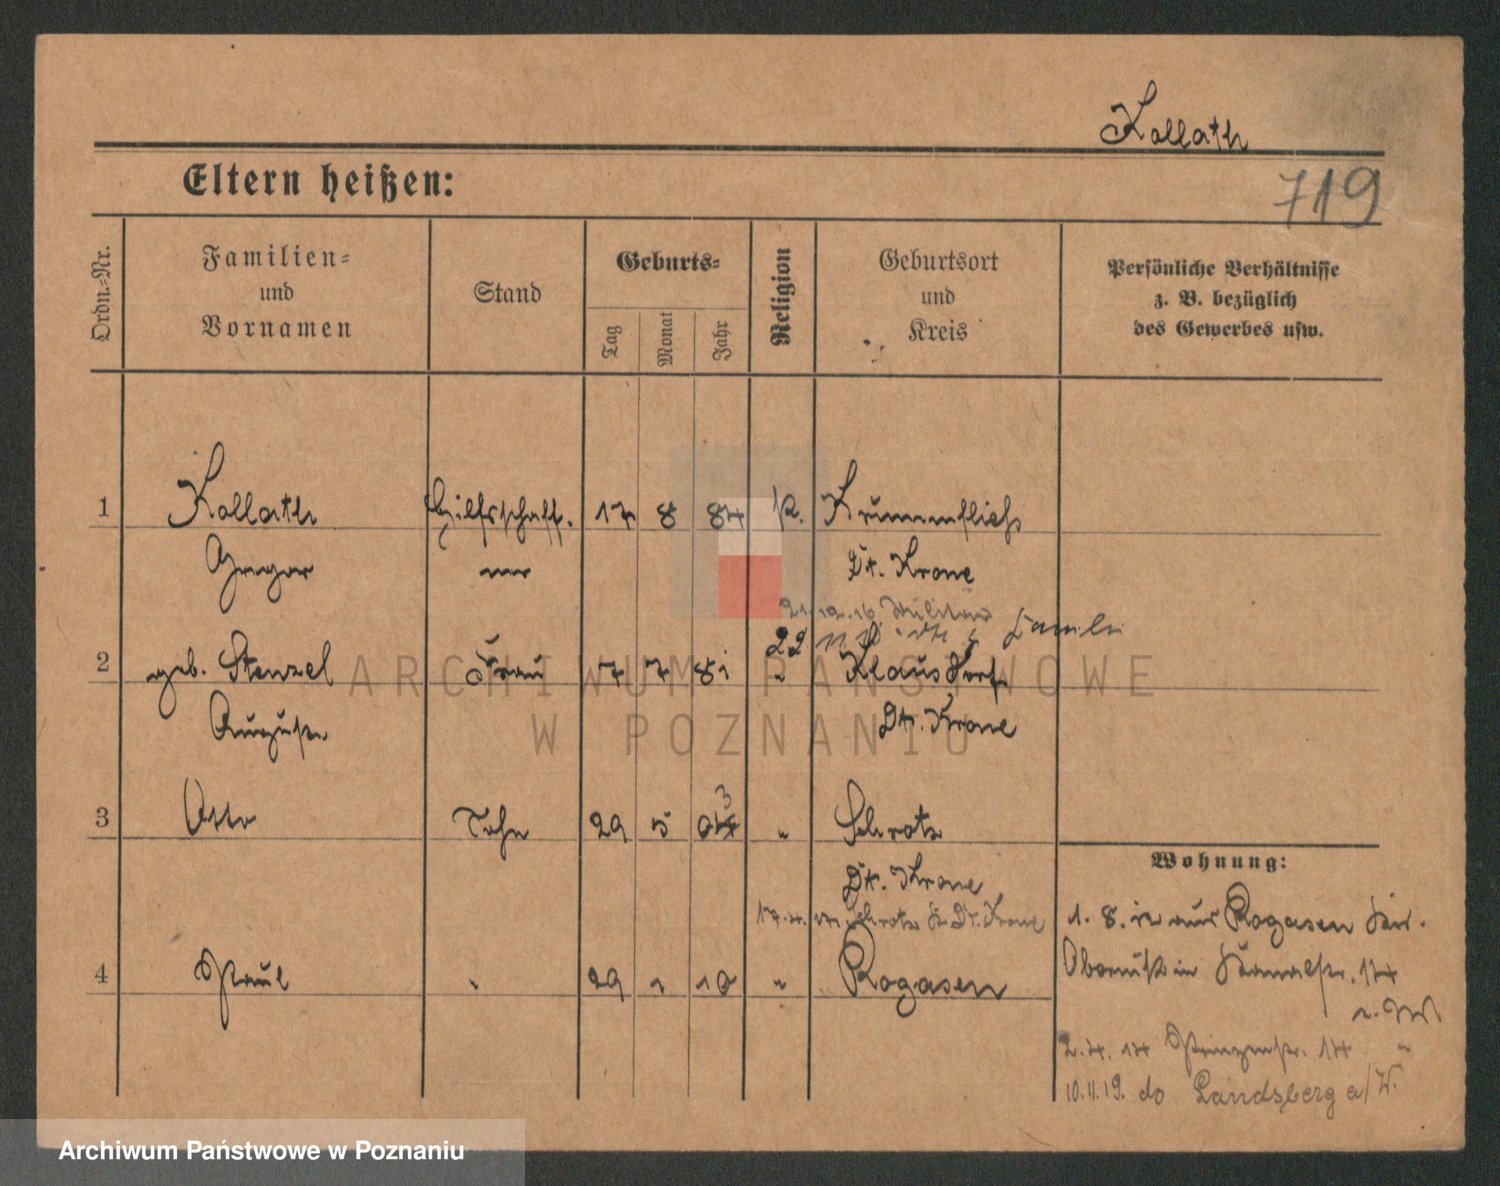 Kollath
Eltern heißen:
719
Ordn.-Nr.
Familien- und Vornamen
Stand
Geburts-
Tag
Monat
Jahr
Religion
Geburtsort und Kreis
Persönliche Verhältnisse z. B. bezüglich des Gewerbes usw.
1 Kollath Hilfsschaff. 17 8 84 K. Krummfließ
Gregor ner Dt. Krone
21.12.16 Militär
22
2 geb. Stenzel Frau 7 7 81 " Klausdorf
Auguste Dt. Krone
3 Otto Sohn 29 5 04 3 " Schrotz
Dt. Krone
Wohnung:
17.4. Schrotz Kr. Dt. Krone
1. 8. 12 aus Rogasen Kr.
4 Paul " 29 1 10 " Rogasen
Obornik in Kanalstr. 14
2.4. 14 Prinzenstr. 14 "
10.11.19. do Landsberg a/W.
ARCHIWUM PAŃSTWOWE
W POZNANIU
Archiwum Państwowe w Poznaniu